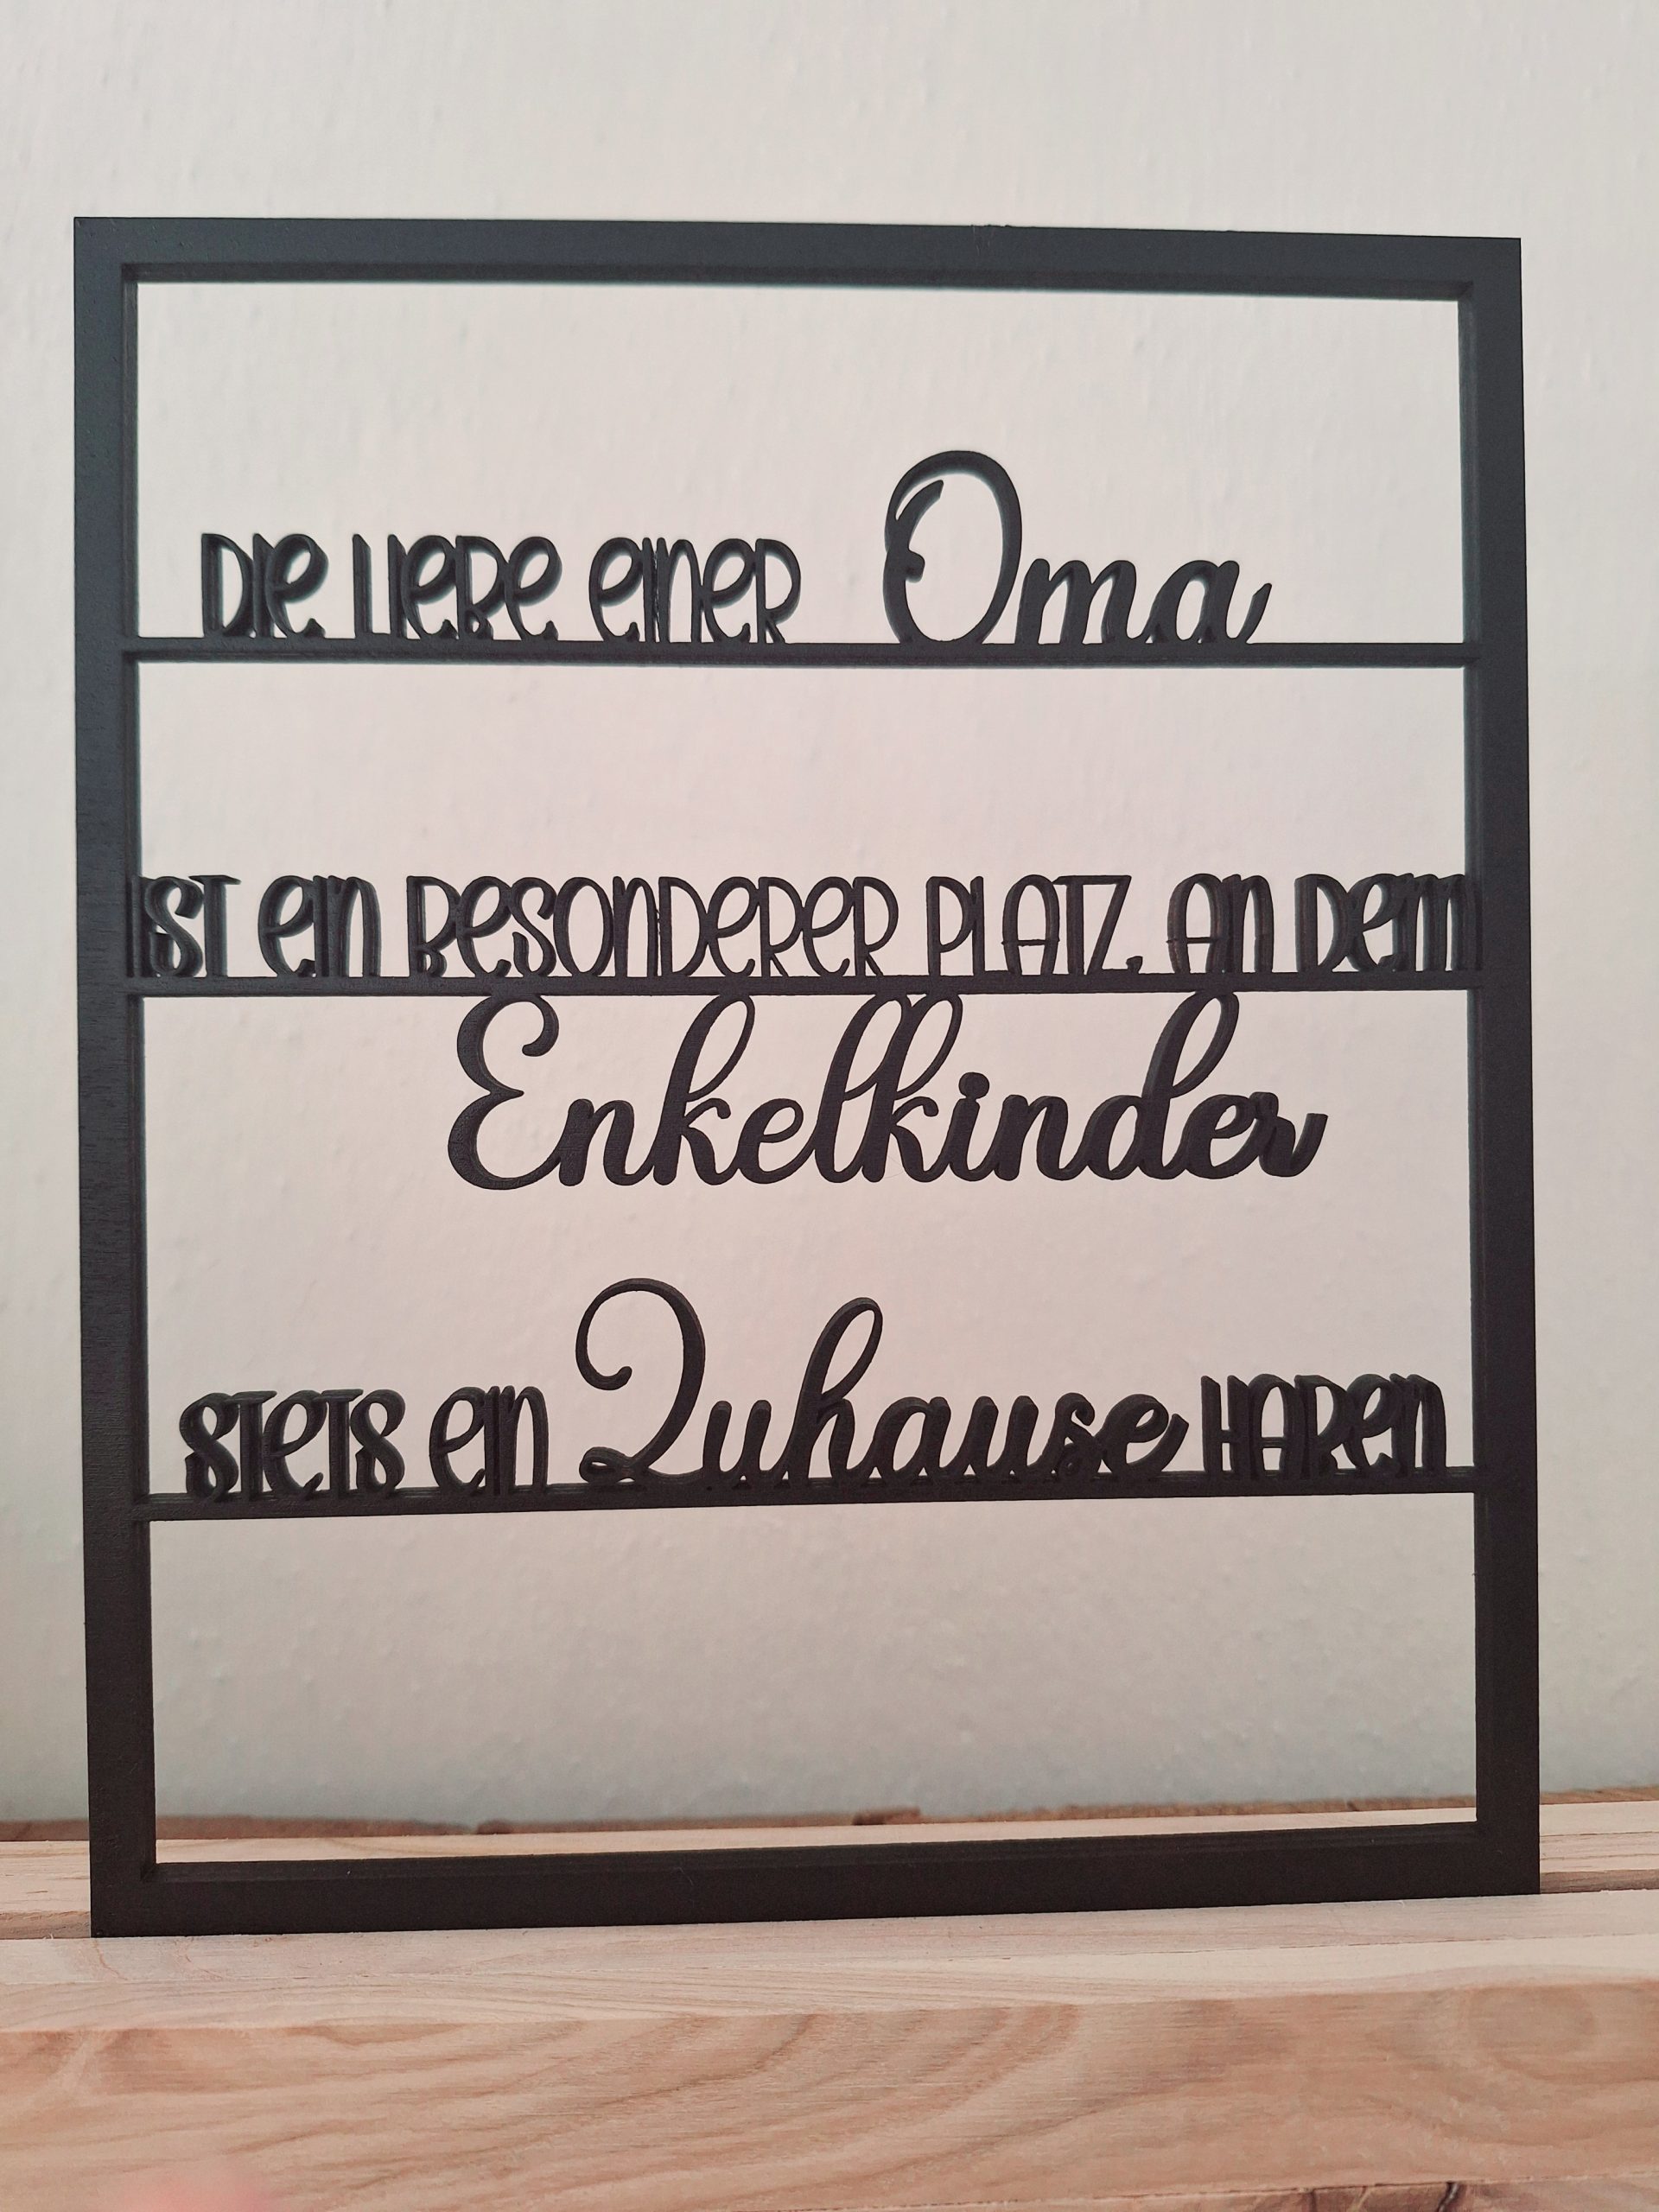 DIE LIEBE EINER Oma
IST EIN BESONDERER PLATZ, AN DEM
Enkelkinder
STETS EIN Zuhause HABEN